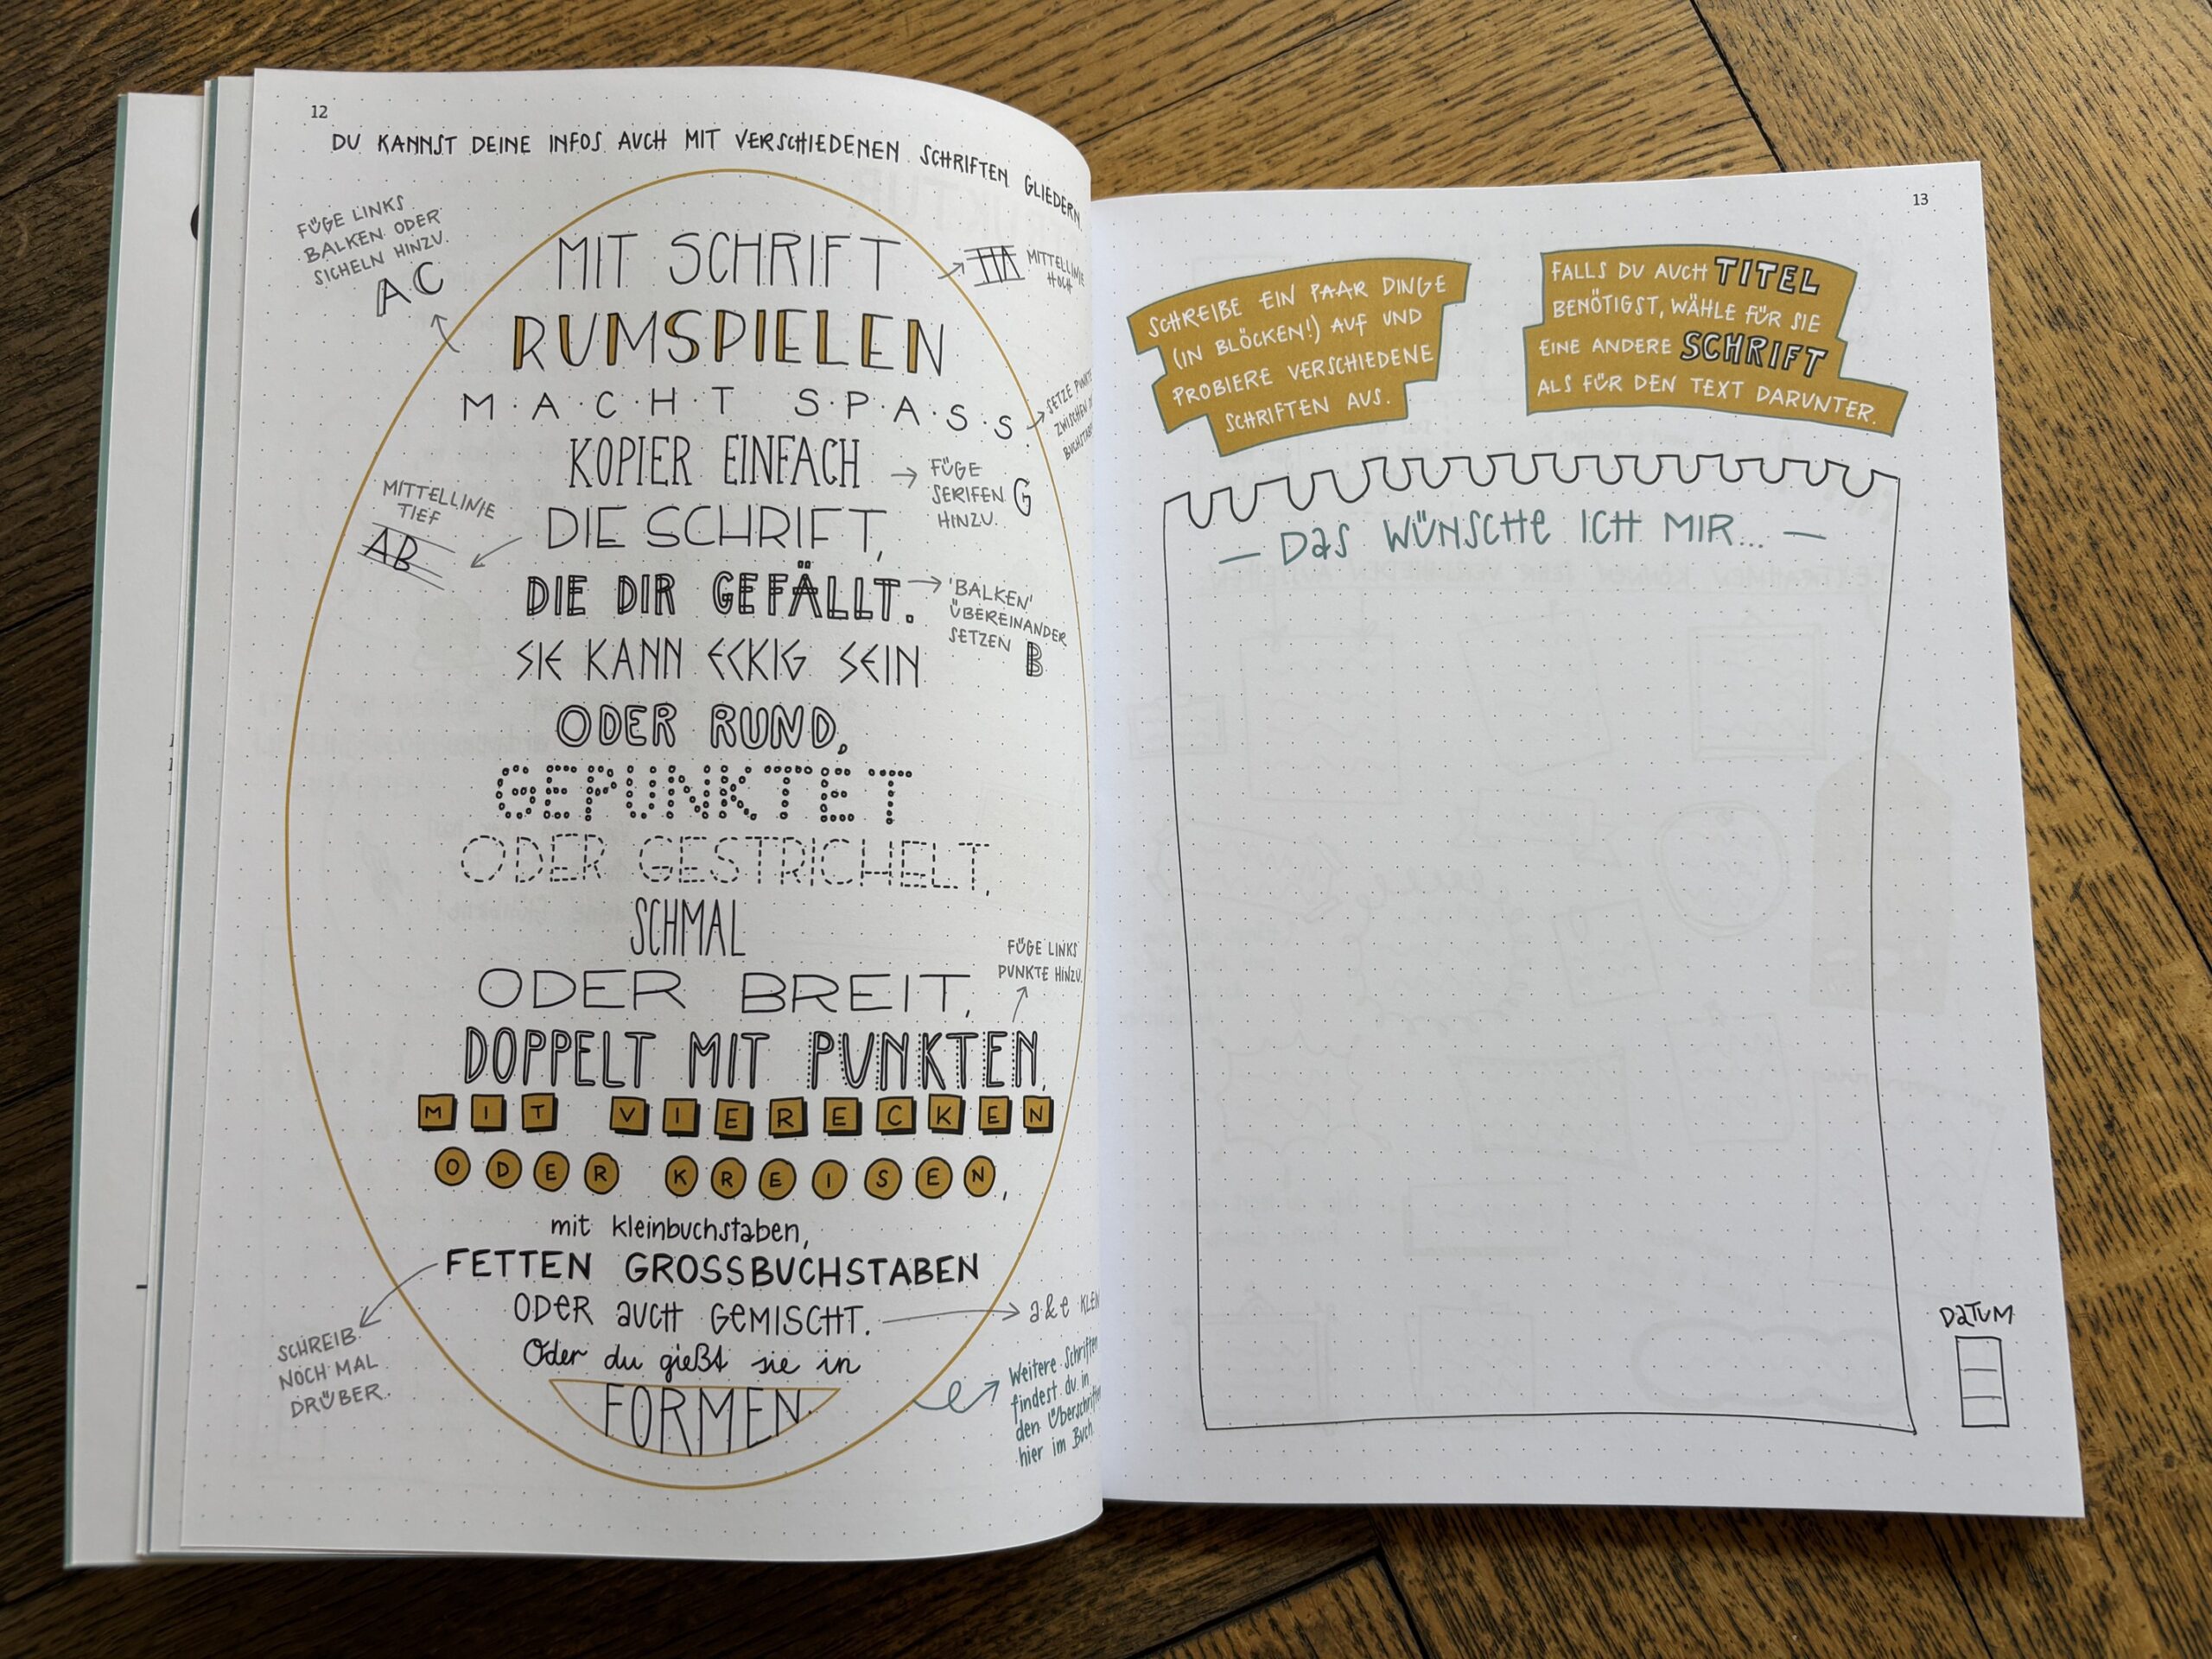 12
DU KANNST DEINE INFOS AUCH MIT VERSCHIEDENEN SCHRIFTEN GLIEDERN.
FÜGE LINKS
BALKEN ODER
SICHELN HINZU.
AC
MIT SCHRIFT
HA MITTELLINIE
HOCH
RUMSPIELEN
M·A·C·H·T S·P·A·S·S.
SETZE PUNKTE
ZWISCHEN
KOPIER EINFACH
FÜGE
SERIFEN G
HINZU.
MITTELLINIE
TIEF
AB
DIE SCHRIFT,
DIE DIR GEFÄLLT.
'BALKEN'
ÜBEREINANDER
SETZEN B
SIE KANN ECKIG SEIN
ODER RUND,
GEPUNKTET
ODER GESTRICHELT,
SCHMAL
ODER BREIT,
FÜGE LINKS
PUNKTE HINZU.
DOPPELT MIT PUNKTEN,
MIT VIERECKEN
ODER KREISEN,
mit kleinbuchstaben,
FETTEN GROSSBUCHSTABEN
SCHREIB
NOCH MAL
DRÜBER.
ODeR aUCH GeMISCHT.
a & e
Oder du gießt sie in
FORMEN
Weitere Schriften
findest du in
den
hier im Buch
13
SCHREIBE EIN PAAR DINGE
(IN BLÖCKEN!) AUF UND
PROBIERE VERSCHIEDENE
SCHRIFTEN AUS.
FALLS DU AUCH TITEL
BENÖTIGST, WÄHLE FÜR SIE
EINE ANDERE SCHRIFT
ALS FÜR DEN TEXT DARUNTER.
— DaS WÜNSCHe ICH MIR... —
DaTUM